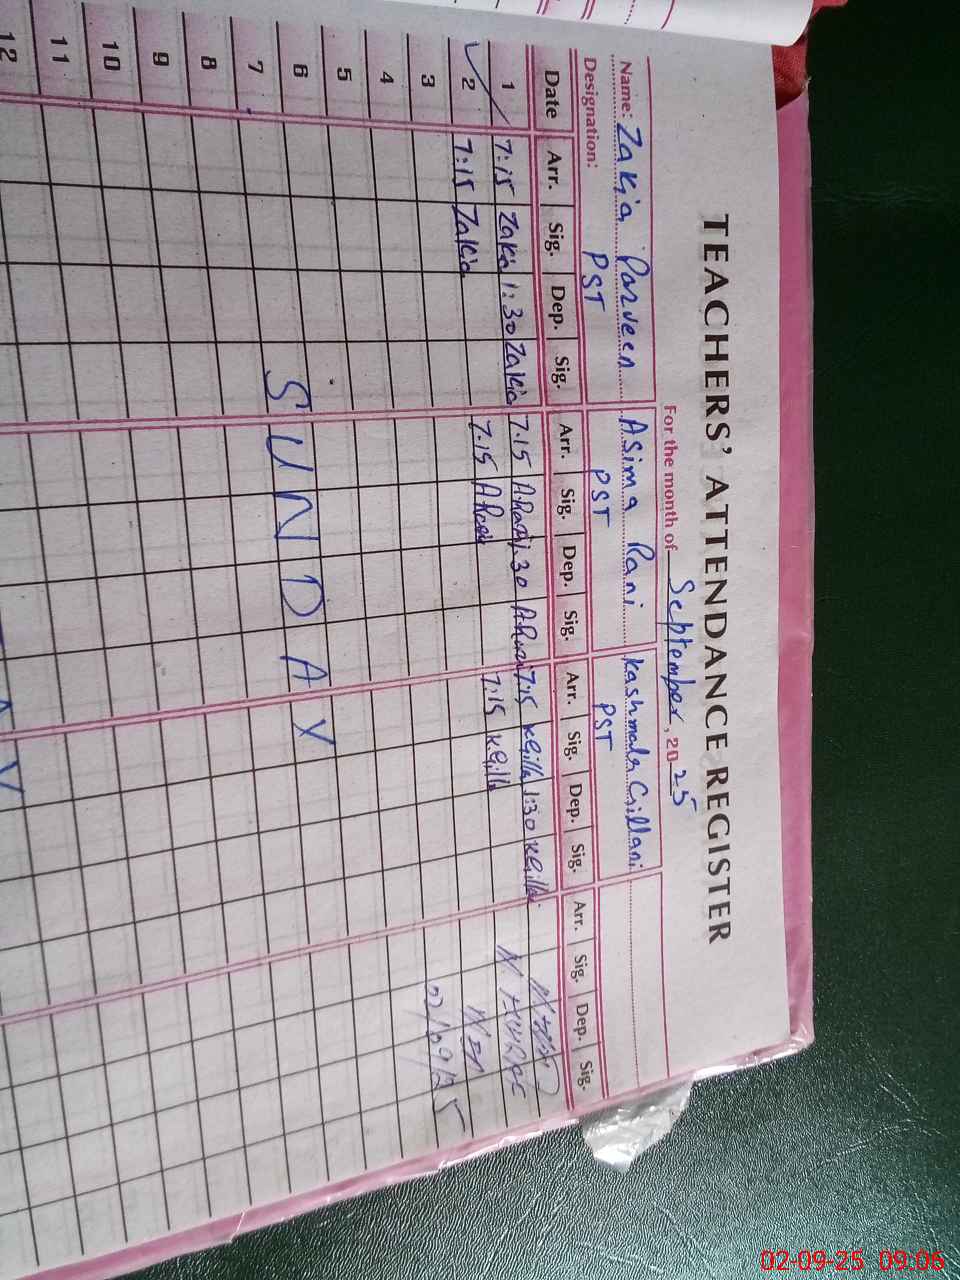 TEACHERS' ATTENDANCE REGISTER
For the month of September, 2025
Name: Zakia Parveen Asima Rani Kashmala Gillani
Designation: PST PST PST
Date Arr. Sig. Dep. Sig. Arr. Sig. Dep. Sig. Arr. Sig. Dep. Sig. Arr. Sig. Dep. Sig.
1 7:15 Zakia 1:30 Zakia 7.15 A.Rani 1.30 A.Rani 7:15 K.Gillani 1:30 K.Gillani
2 7:15 Zakia 7.15 A.Rani 7:15 K.Gillani
3 02/09/25
4
5
6 SUNDAY
7
8
9
10
11
12
02-09-25 09:06